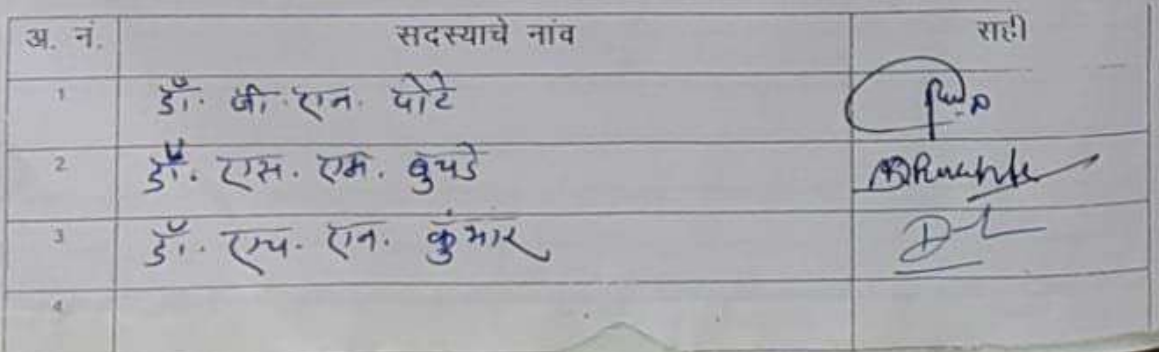 अ. नं. सदस्याचे नांव सही
1 डॉ. जी. एन. पोटे
2 डॉ. एस. एम. बुचडे
3 डॉ. एच. एन. कुंभार
4